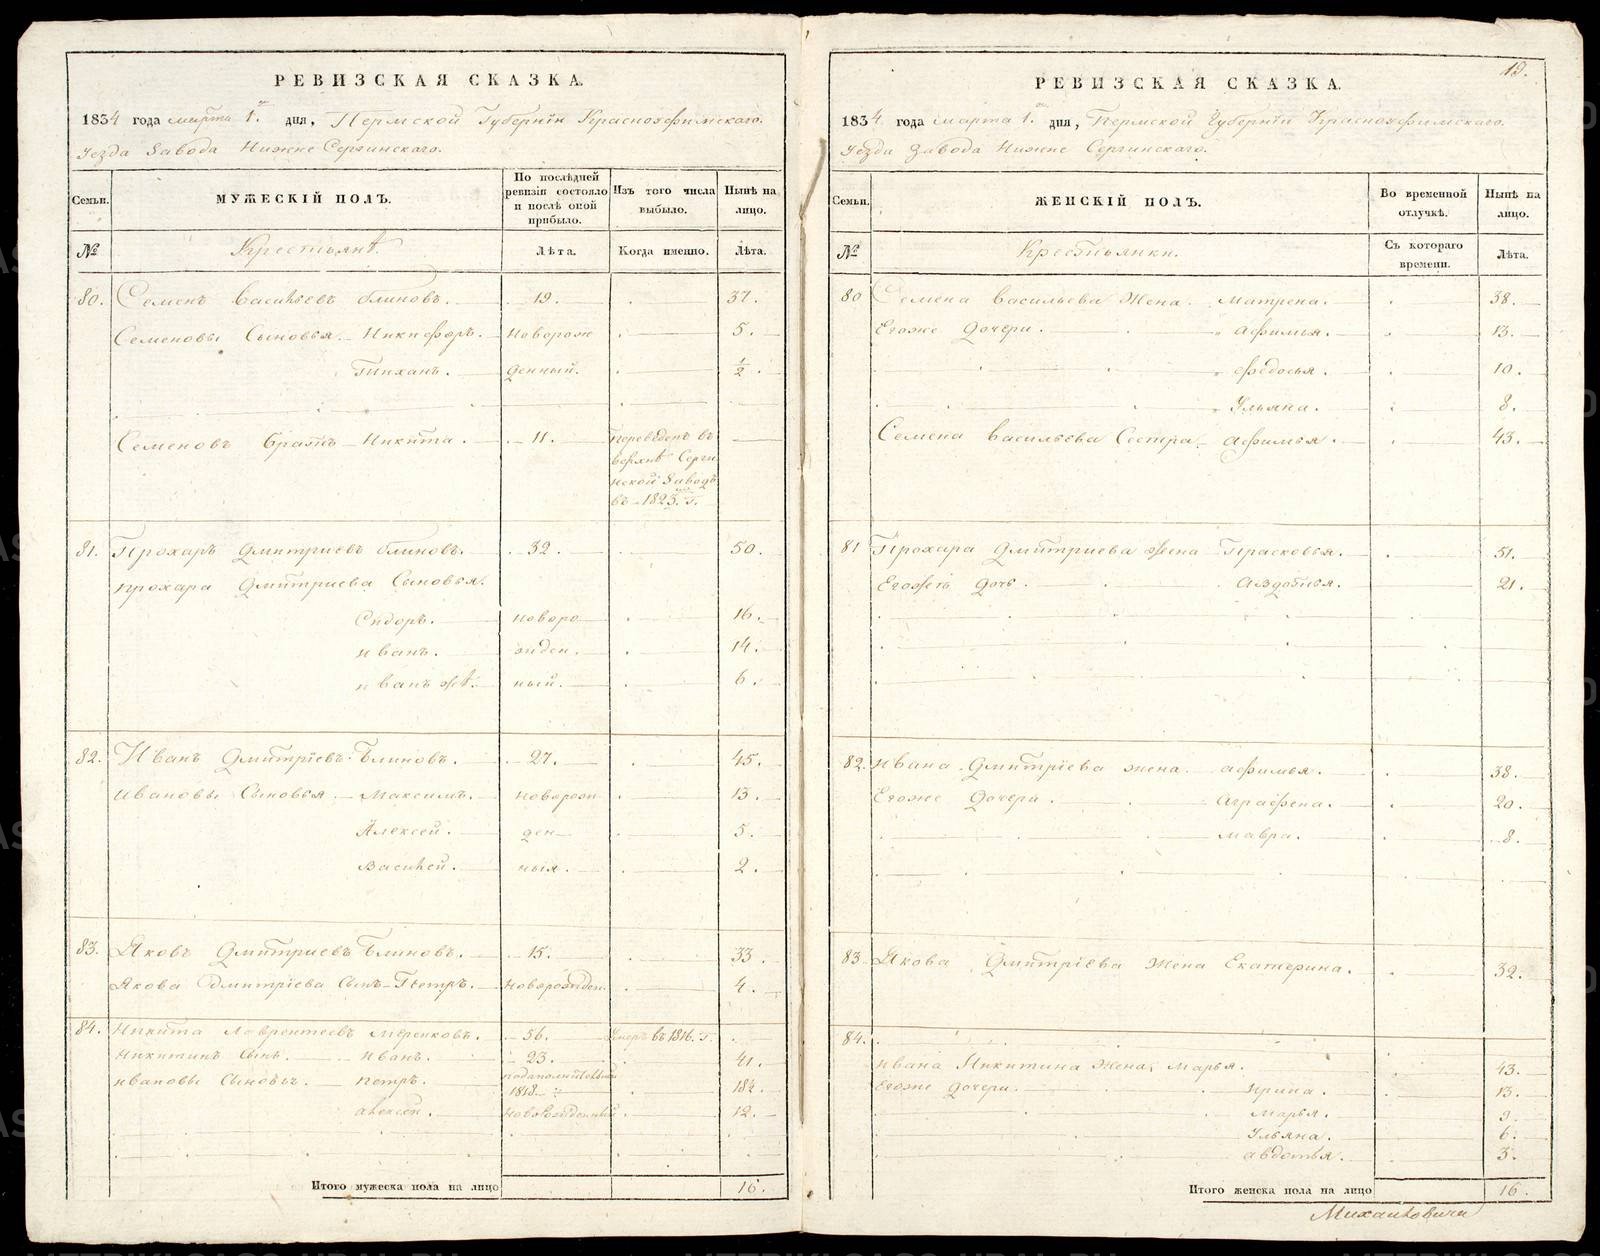 РЕВИЗСКАЯ СКАЗКА.
1834 года марта 1го дня, Пермской Губернiи Красноуфимскаго.
Уезда Завода Нижне Сергинскаго.
Семьи. МУЖЕСКIЙ ПОЛЪ. По послѣдней ревизiи состояло и послѣ оной прибыло. Изъ того числа выбыло. Нынѣ на лицо.
№ Крестьянѣ Лѣта. Когда именно. Лѣта.
80. Семенъ Васильевъ Блиновъ. 19. 37.
Семеновы Сыновья Никифоръ. Новорож 5.
Тиханъ. денный. 1/2.
Семеновъ Братъ Никита. 11. Переведенъ въ
верхнѣ Серги
нской Заводъ
въ 1823. г.
81. Прохаръ Дмитриевъ Блиновъ. 32. 50.
Прохара Дмитриева Сыновья.
Сидоръ. Новоро 16.
Иванъ. жден. 14.
Иванъ жѣ. ный. 6.
82. Иванъ Дмитрiевъ Блиновъ. 27. 45.
Ивановы Сыновья Максимъ. Новорож 13.
Алексей. ден 5.
Василей. ныя. 2.
83. Яковъ Дмитриевъ Блиновъ. 15. 33.
Якова Дмитрiева Сынъ Петръ. Новорожден. 4.
84. Никита Лаврентеевъ Меренковъ. 56. Умеръ въ 1816. г.
Никитинъ Сынъ. Иванъ. 23. 41.
Ивановы Сыновья. Петръ. 1818 18½
алексей. Новорожденный 12.
Итого мужеска пола на лицо 16.
19.
РЕВИЗСКАЯ СКАЗКА.
1834 года марта 1го дня, Пермской Губернiи Красноуфимскаго.
Уезда Завода Нижне Сергинскаго.
Семьи. ЖЕНСКIЙ ПОЛЪ. Во временной отлучкѣ. Нынѣ на лицо.
№ Крестьянки. Съ котораго времени. Лѣта.
80 Семена Васильева Жена. Матрена. 38.
Егоже Дочери. Афимья. 13.
Федосья. 10.
Ульяна. 8.
Семена Васильева Сестра Афимья. 43.
81 Прохара Дмитриева жена Прасковья. 51.
Егожеть дочь. Авдотья. 21.
82. Ивана Дмитрiева жена. афимья. 38.
Егоже Дочери. Аграфена. 20.
Мавра. 8.
83 Якова Дмитрiева Жена Екатерина. 32.
84.
Ивана Никитина Жена, Марья. 43.
Егоже дочери. Ирина. 13.
Марья. 9.
Ульяна. 6.
авдотья. 3.
Итого женска пола на лицо 16.